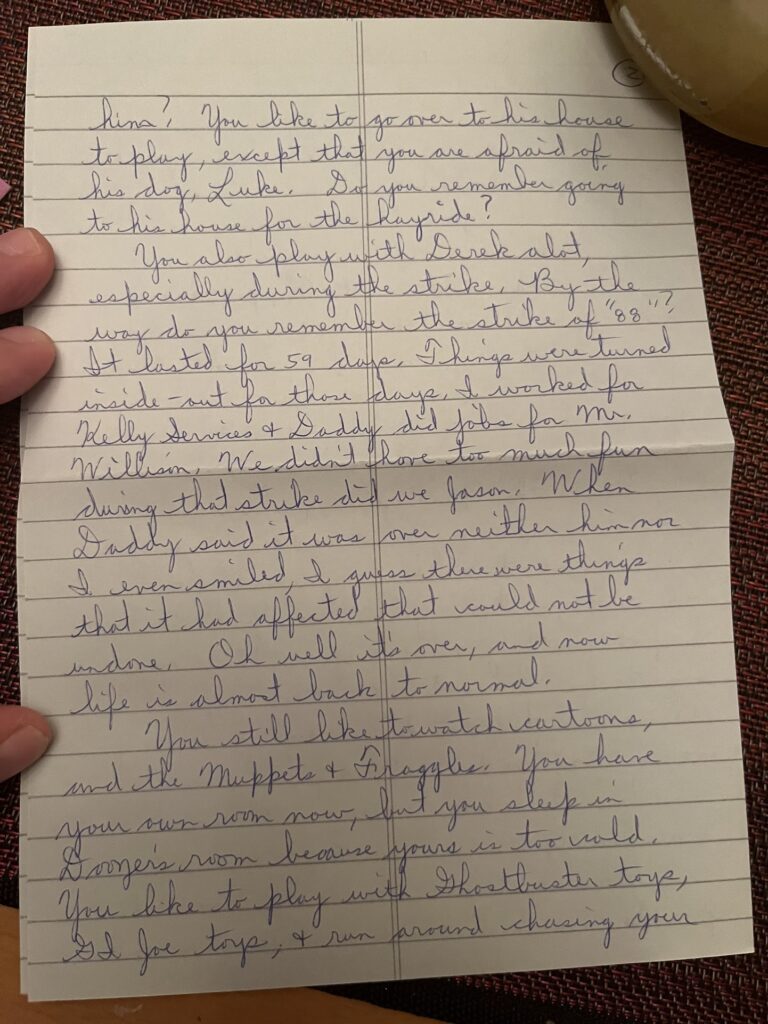 2
him? You like to go over to his house
to play, except that you are afraid of
his dog, Luke. Do you remember going
to his house for the hayride?
You also play with Derek alot,
especially during the strike. By the
way do you remember the strike of "88"?
It lasted for 59 days. Things were turned
inside-out for those days. I worked for
Kelly Services & Daddy did jobs for Mr.
Willison. We didn't have too much fun
during that strike did we Jason. When
Daddy said it was over neither him nor
I even smiled, I guess there were things
that it had affected that could not be
undone. Oh well it's over, and now
life is almost back to normal.
You still like to watch cartoons,
and the Muppets & Fraggles. You have
your own room now, but you sleep in
Doozer's room because yours is too cold.
You like to play with Ghostbuster toys,
GI Joe toys, & run around chasing your